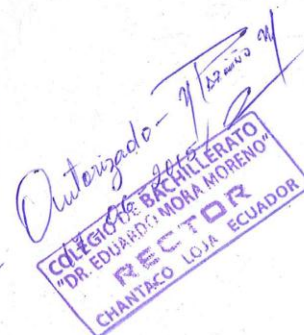 Autorizado-
COLEGIO DE BACHILLERATO
"DR. EDUARDO MORA MORENO"
RECTOR
CHANTACO LOJA ECUADOR